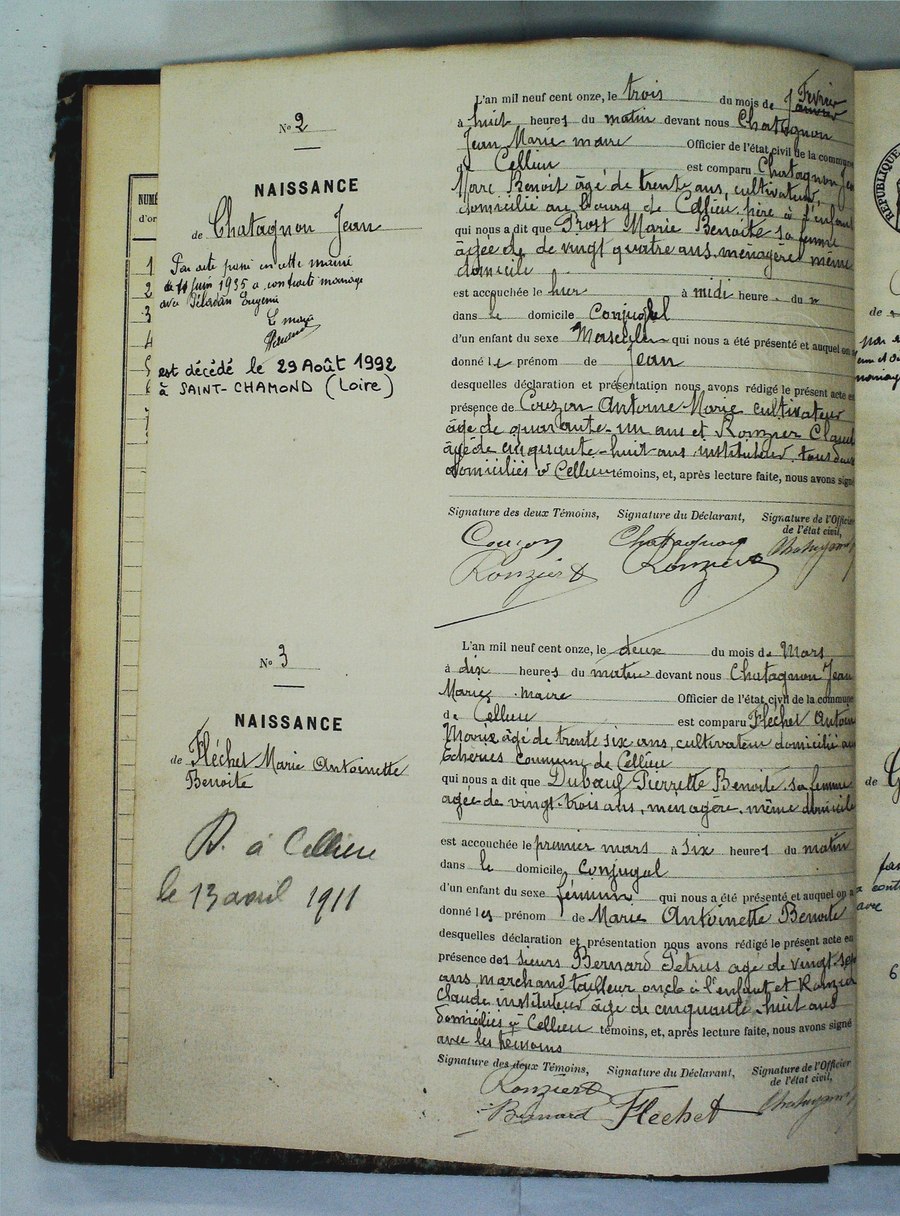 N° 2
NAISSANCE
de Chatagnon Jean
Par acte passé en cette mairie
le 11 juin 1935 a contracté mariage
avec Eugénie
Le maire
est décédé le 29 Août 1992
à SAINT-CHAMOND (Loire)
L'an mil neuf cent onze, le trois du mois de Janvier Fevrier
à huit heures du matin devant nous Chatagnon
Jean Marie maire Officier de l'état civil de la commune
de Cellieu est comparu Chatagnon Jean
Marc Benoit âgé de trente ans, cultivateur,
domicilié au Bourg de Cellieu, père à l'enfant
qui nous a dit que Prost Marie Benoite sa femme
âgée de de vingt quatre ans, ménagère même
domicile
est accouchée le hier à midi heure du
dans le domicile Conjugal
d'un enfant du sexe Masculin qui nous a été présenté et auquel on a
donné le prénom de Jean
desquelles déclaration et présentation nous avons rédigé le présent acte en
présence de Couzon Antoine Marie cultivateur
âgé de quarante-un ans et Ronzier Claude
âgé de cinquante-huit ans instituteur tous deux
domiciliés à Cellieu témoins, et, après lecture faite, nous avons signé
Signature des deux Témoins, Signature du Déclarant, Signature de l'Officier
de l'état civil,
Couzon Chatagnon Chatagnon
Ronzier Ronzier
N° 3
NAISSANCE
de Fléchet Marie Antoinette
Benoite
D. à Cellieu
le 13 avril 1911
L'an mil neuf cent onze, le deux du mois de Mars
à dix heures du matin devant nous Chatagnon Jean
Marie maire Officier de l'état civil de la commune
de Cellieu est comparu Fléchet Antoine
Marie âgé de trente six ans, cultivateur domicilié au
Echeries commune de Cellieu
qui nous a dit que Dubœuf Pierrette Benoite sa femme
âgée de vingt-trois ans, ménagère, même domicile
est accouchée le premier mars à six heures du matin
dans le domicile conjugal
d'un enfant du sexe féminin qui nous a été présenté et auquel on a
donné les prénom de Marie Antoinette Benoite
desquelles déclaration et présentation nous avons rédigé le présent acte en
présence des sieurs Bernard Petrus agé de vingt-sept
ans, marchand tailleur oncle à l'enfant et Ronzier
Claude instituteur âgé de cinquante-huit ans
domiciliés à Cellieu témoins, et, après lecture faite, nous avons signé
avec les témoins
Signature des deux Témoins, Signature du Déclarant, Signature de l'Officier
de l'état civil,
Ronzier
Bernard Flechet Chatagnon